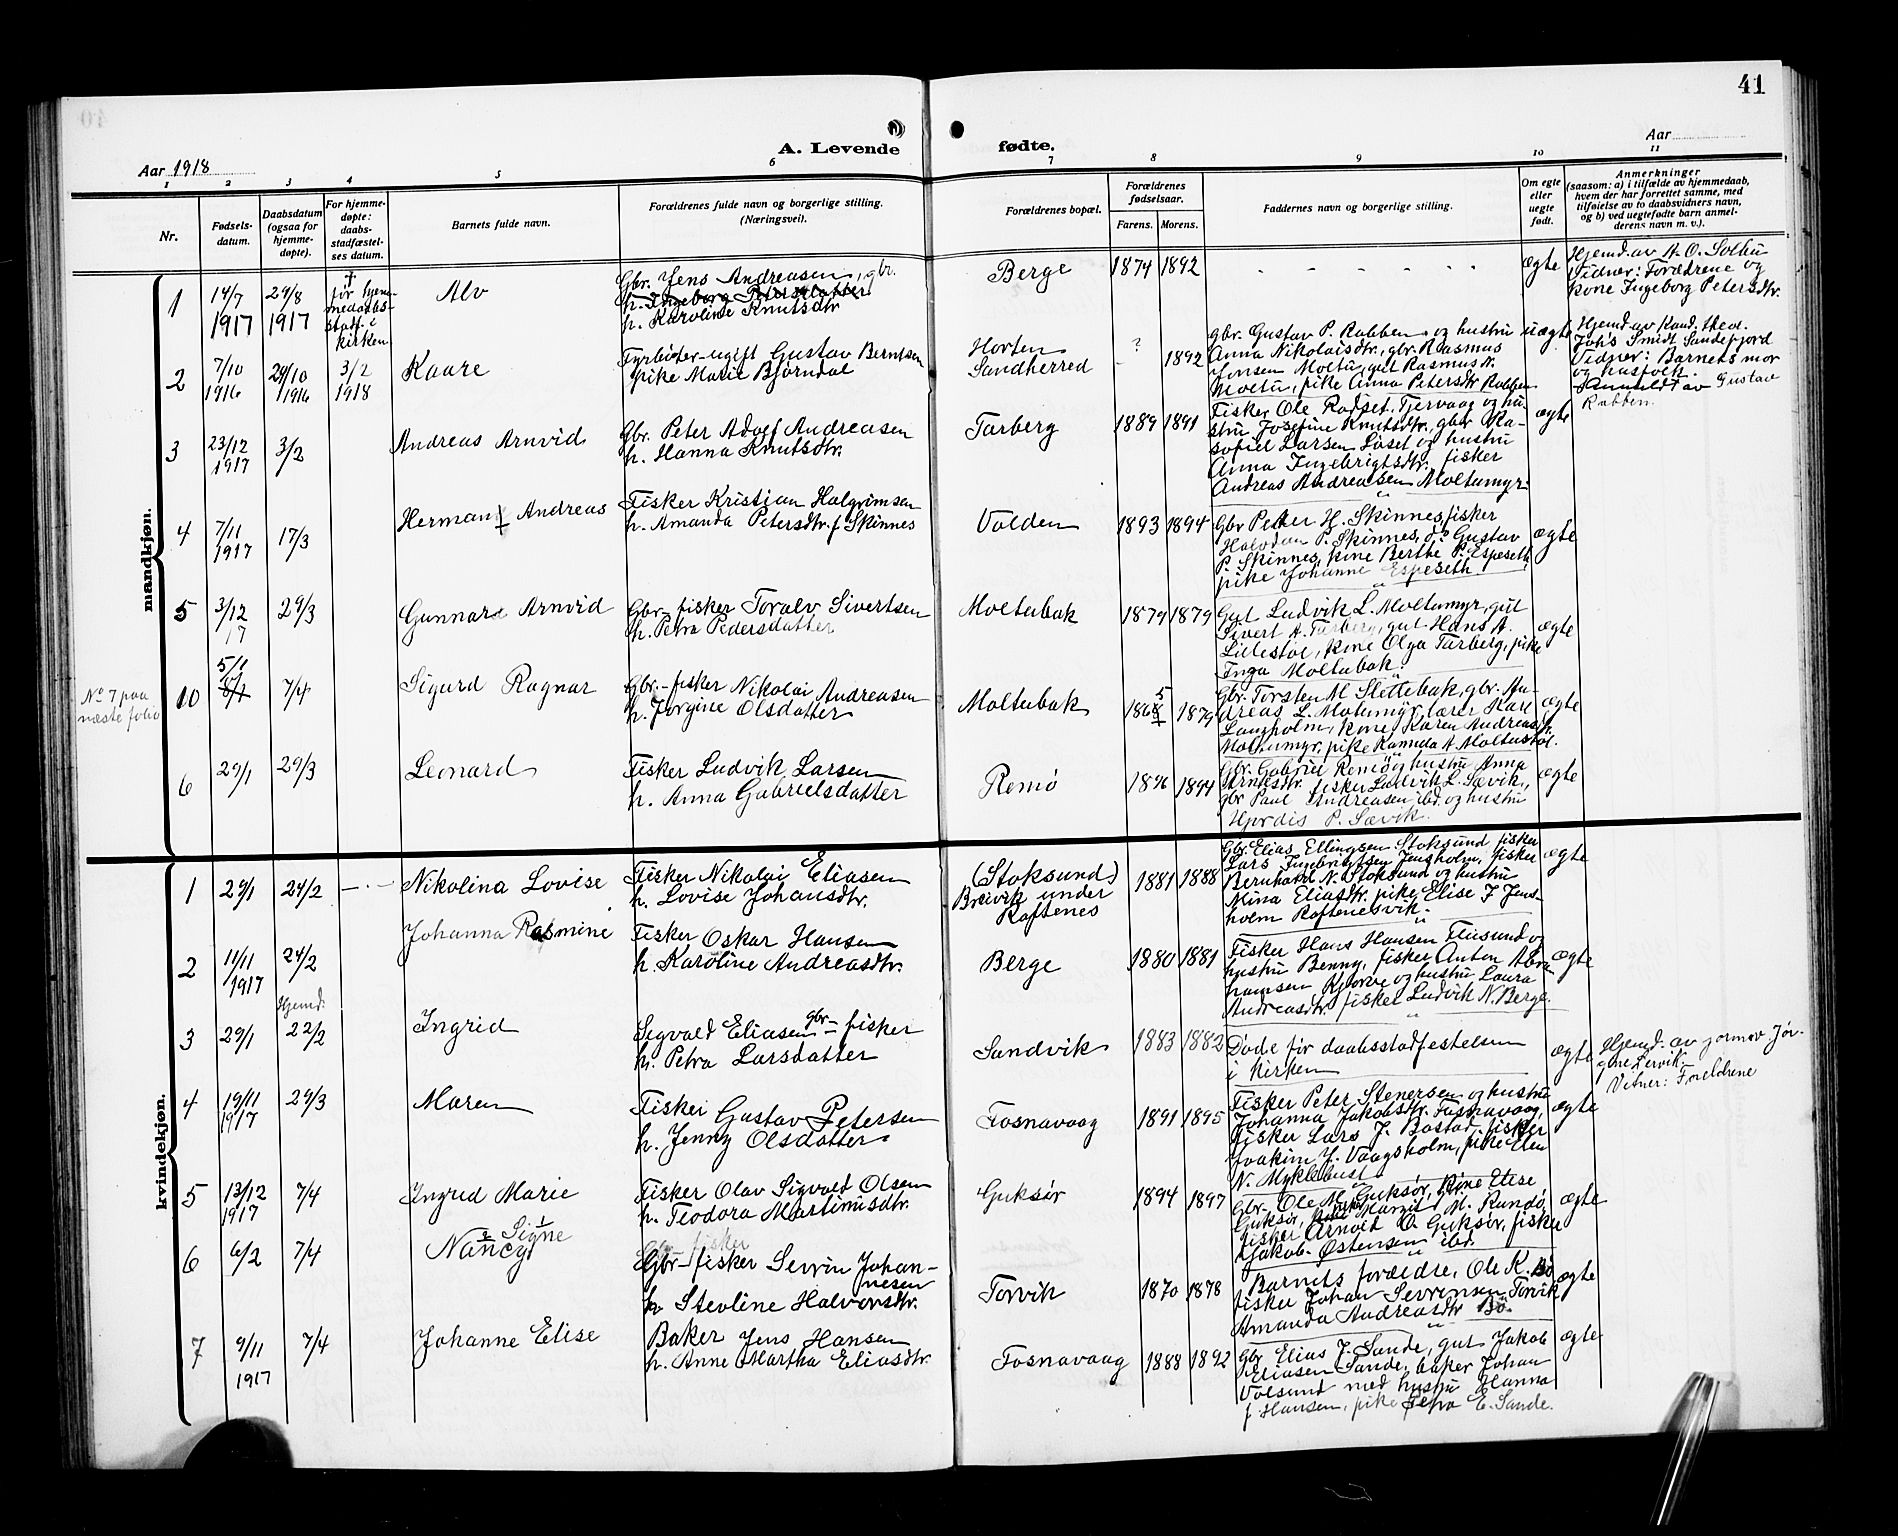 41
Aar 1918
A. Levende
fødte.
Aar
1 2 3 4 5 6 7 8 9 10 11
Nr.
Fødsels-
datum.
Daabsdatum
(ogsaa for
hjemme-
døpte).
For hjemme-
døpte:
daabs-
stadfæstel-
ses datum.
Barnets fulde navn.
Forældrenes fulde navn og borgerlige stilling.
(Næringsvei).
Forældrenes bopæl.
Forældrenes
fødselsaar.
Farens. Morens.
Faddernes navn og borgerlige stilling.
Om egte
eller
uegte
født.
Anmerkninger
(saasom: a) i tilfælde av hjemmedaab,
hvem der har forrettet samme, med
tilføielse av to daabsvidners navn,
og b) ved uegtefødte barn anmel-
derens navn m. v.).
mandkjøn.
1
14/7
1917
29/8
1917
†
før hjem-
medaabs-
stadf. i
kirken
Alv
Gbr. Jens Andreasen, gbr.
h. Ingeborg Petersdatter
h. Karoline Knutsdtr
Berge
1874 1892
- - - - - -
ægte
Hjemd. av A. O. Solbu
Vidner: Forældrene og
kone Ingeborg Petersdtr.
2
7/10
1916
29/10
1916
3/2
1918
Kaare
Fyrbøter-ugift Gustav Berntsen
pike Marie Bjørndal
Horten
Sandherred
?
- 1892
Gbr. Gustav P. Rabben og hustru
Anna Nikolaisdtr, gbr. Rasmus
Jonsen Moltu, gut Rasmus dr.
Moltu, pike Anna Petersdtr Rabben
uægte
Hjemd. av Kand. theol.
Johs Smidt Sandefjord
Vidner: Barnets mor
og husfolk.
Anmeldt av Gustav
Rabben.
3
23/12
1917
3/2
Andreas Arnvid
Gbr. Peter Adolf Andreasen
h. Hanna Knutsdtr.
Tarberg
1889 1891
Fisker Ole Radset, Tjervaag og hu-
stru Josefine Knutsdtr, gbr Ra-
sofiel Larsen Løset og hustru
Anna Ingebrigtsdtr, fisker
Andreas Andreassen Moltumyr.
ægte
4
7/11
1917
17/3
Herman Andreas
Fisker Kristian Halgrimsen
h. Amanda Petersdtr. f. Skinnes
Volden
1893 1894
Gbr Petter H. Skinnes, fisker
Halvdan P. Skinnes, do Gustav
P. Skinnes, kone Berthe P. Espeseth,
pike Johanne Espeseth.
ægte
5
3/12
17
29/3
Gunnar Arnvid
Gbr.-fisker Toralv Sivertsen
h. Petra Pedersdatter
Moltubak
1879 1879
Gut Ludvik L. Moltumyr, gut
Sivert A. Tarberg, gut Hans A.
Lillestøl, kone Olga Tarberg, pike
Inga Moltubak.
ægte
No 7 paa
næste folio
10
5/1
7/4
Sigurd Ragnar
Gbr.-fisker Nikolai Andreasen
h. Jørgine Olsdatter
Moltubak
1865 1879
Gbr. Torsten M Slettebak, gbr. An-
dreas L. Moltumyr, lærer Karl
Langholm, kone Karen Andreasdtr.
Moltumyr, pike Ramida A. Moltustøl.
ægte
6
29/1
29/3
Leonard
Fisker Ludvik Larsen
h. Anna Gabrielsdatter
Remø
1896 1894
Gbr. Gabriel Remøy hustru Anna
Arntsdtr. fisker Ludvik L. Sævik,
gbr Paul Andreasen ibd. og hustru
Hjørdis P. Sævik.
ægte
kvindekjøn.
1
29/1
24/2
- . -
Nikolina Lovise
Fisker Nikolai Eliasen
h. Lovise Johansdtr.
(Stoksund)
Breivik under
Røftenes
1881 1888
Gbr. Elias Ellingsen Stoksund, fisker
Lars Ingebrigtsen Jensholm, fisker
Bernhard N. Stoksund og hustru
Mina Eliasdtr. pike Elise J Jens-
holm Røftenesvik.
ægte
2
11/11
1917
24/2
Johanna Rasmine
Fisker Oskar Hansen
h. Karoline Andreasdtr.
Berge
1880 1881
Fisker Hans Hansen Flusund og
hustru Benny, fisker Anton Abra-
hamsen Kjørve og hustru Laura
Andreasdtr, fisker Ludvik N. Berge.
ægte
3
29/1
Hjemd.
22/2
Ingrid
Sigvald Eliasen gbr.-fisker
h. Petra Larsdatter
Sandvik
1883 1882
Døde før daabsstadfestelsen
i kirken
ægte
Hjemd. av jormor Jør-
gine Lervik
Vitner: Foreldrene
4
19/11
1917
29/3
Maren
Fisker Gustav Petersen
h. Jenny Olsdatter
Fosnavaag
1891 1895
Fisker Peter Stenersen og hustru
Johanna Jakobsdtr. Fosnavaag,
fisker Lars J. Bøstad, fisker
Joakim J. Vaagsholm, pike Elen
N. Myklebust
ægte
5
13/12
1917
7/4
Ingrid Marie
Fisker Olav Sigvald Olsen
h. Teodora Martinusdtr.
Gjuksør
1894 1897
Gbr. Ole M. Gurksør, kone Elise
Gurksør, pike Marris M. Runde,
fisker Arnold O. Gurksør, fisker
Jakob Østensen ibd.
ægte
6
6/2
7/4
Nancy Signe
Gbr-fisker Sevrin Johan-
nesen
h. Stevline Halvorsdtr.
Torvik
1870 1878
Barnets foreldre, Ole K. Bø
fisker Johan Sevrinsen Torvik
Amanda Andreasdtr Bø.
ægte
7
9/11
1917
7/4
Johanne Elise
Baker Jens Hansen
h. Anne Martha Eliasdtr.
Fosnavaag
1888 1892
Gbr Elias J. Sande, gut Jakob
Eliasen Sande, baker Johan
Volsund med hustru Hanna
f. Hansen, pike Petra E. Sande.
ægte